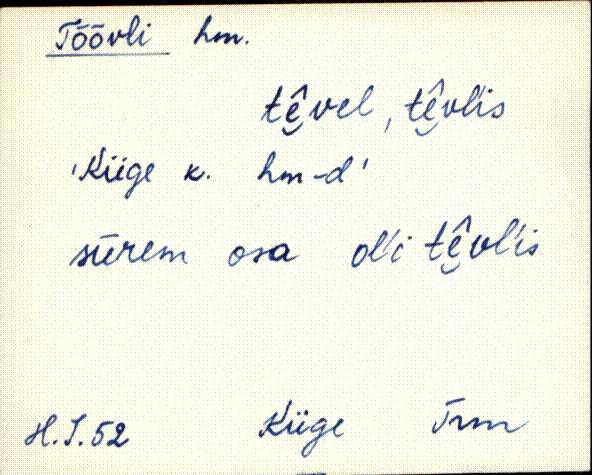 Tõõvli hm.
tе̮̂vel, tе̮̂vl'is
'Kiige k. hm-d'
sūrem osa ol'l'i tе̮̂vl'is
H.J.52 Kiige Trm